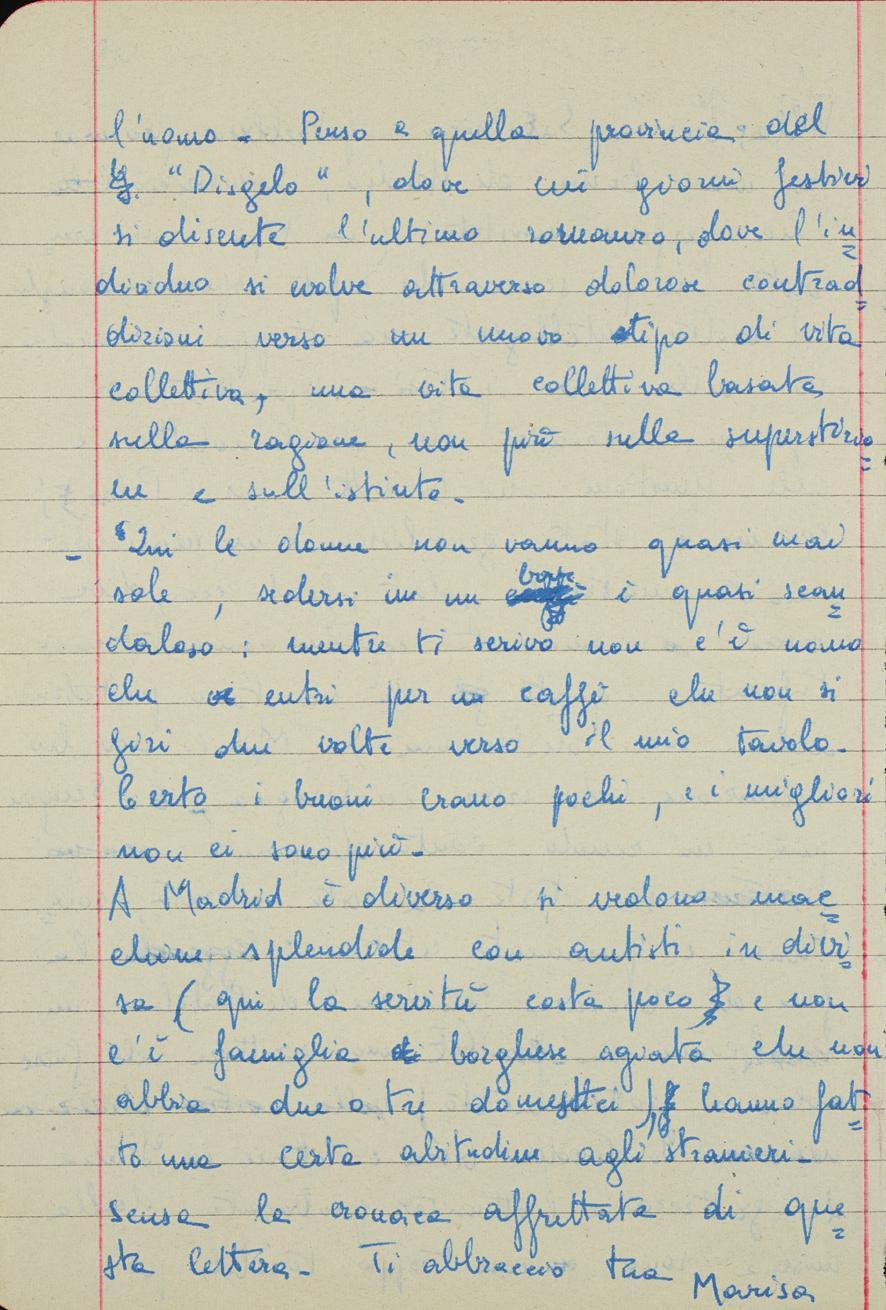 l'uomo - Penso a quella provincia del
"Disgelo", dove nei giorni festivi
si discute l'ultimo romanzo, dove l'in
dividuo si evolve attraverso dolorose contrad
dizioni verso un nuovo tipo di vita
collettiva, una vita collettiva basata
sulla ragione, non più sulla superstizio
ne e sull'istinto.
- "Qui le donne non vanno quasi mai
sole, sedersi in un è quasi scan
daloso: mentre ti scrivo non c'è uomo
che entri per caffè che non si
giri due volte verso il mio tavolo.
Certo i buoni erano pochi, e i migliori
non ci sono più.
A Madrid è diverso si vedono mac
chine splendide con autisti in divi
sa (qui la servitù costa poco e non
c'è famiglia borghese agiata che non
abbia due o tre domestici) hanno fat
to una certa abitudine agli stranieri.
Scusa la cronaca affrettata di que
sta lettera. Ti abbraccio tua
Marisa